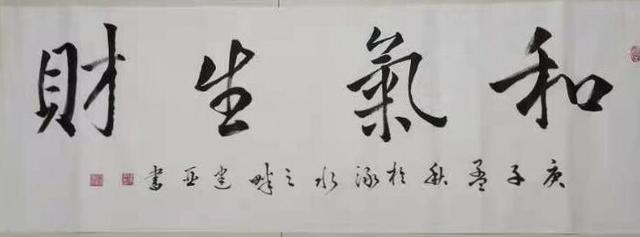 和氣生財
庚子孟秋於涿水之畔建亚書